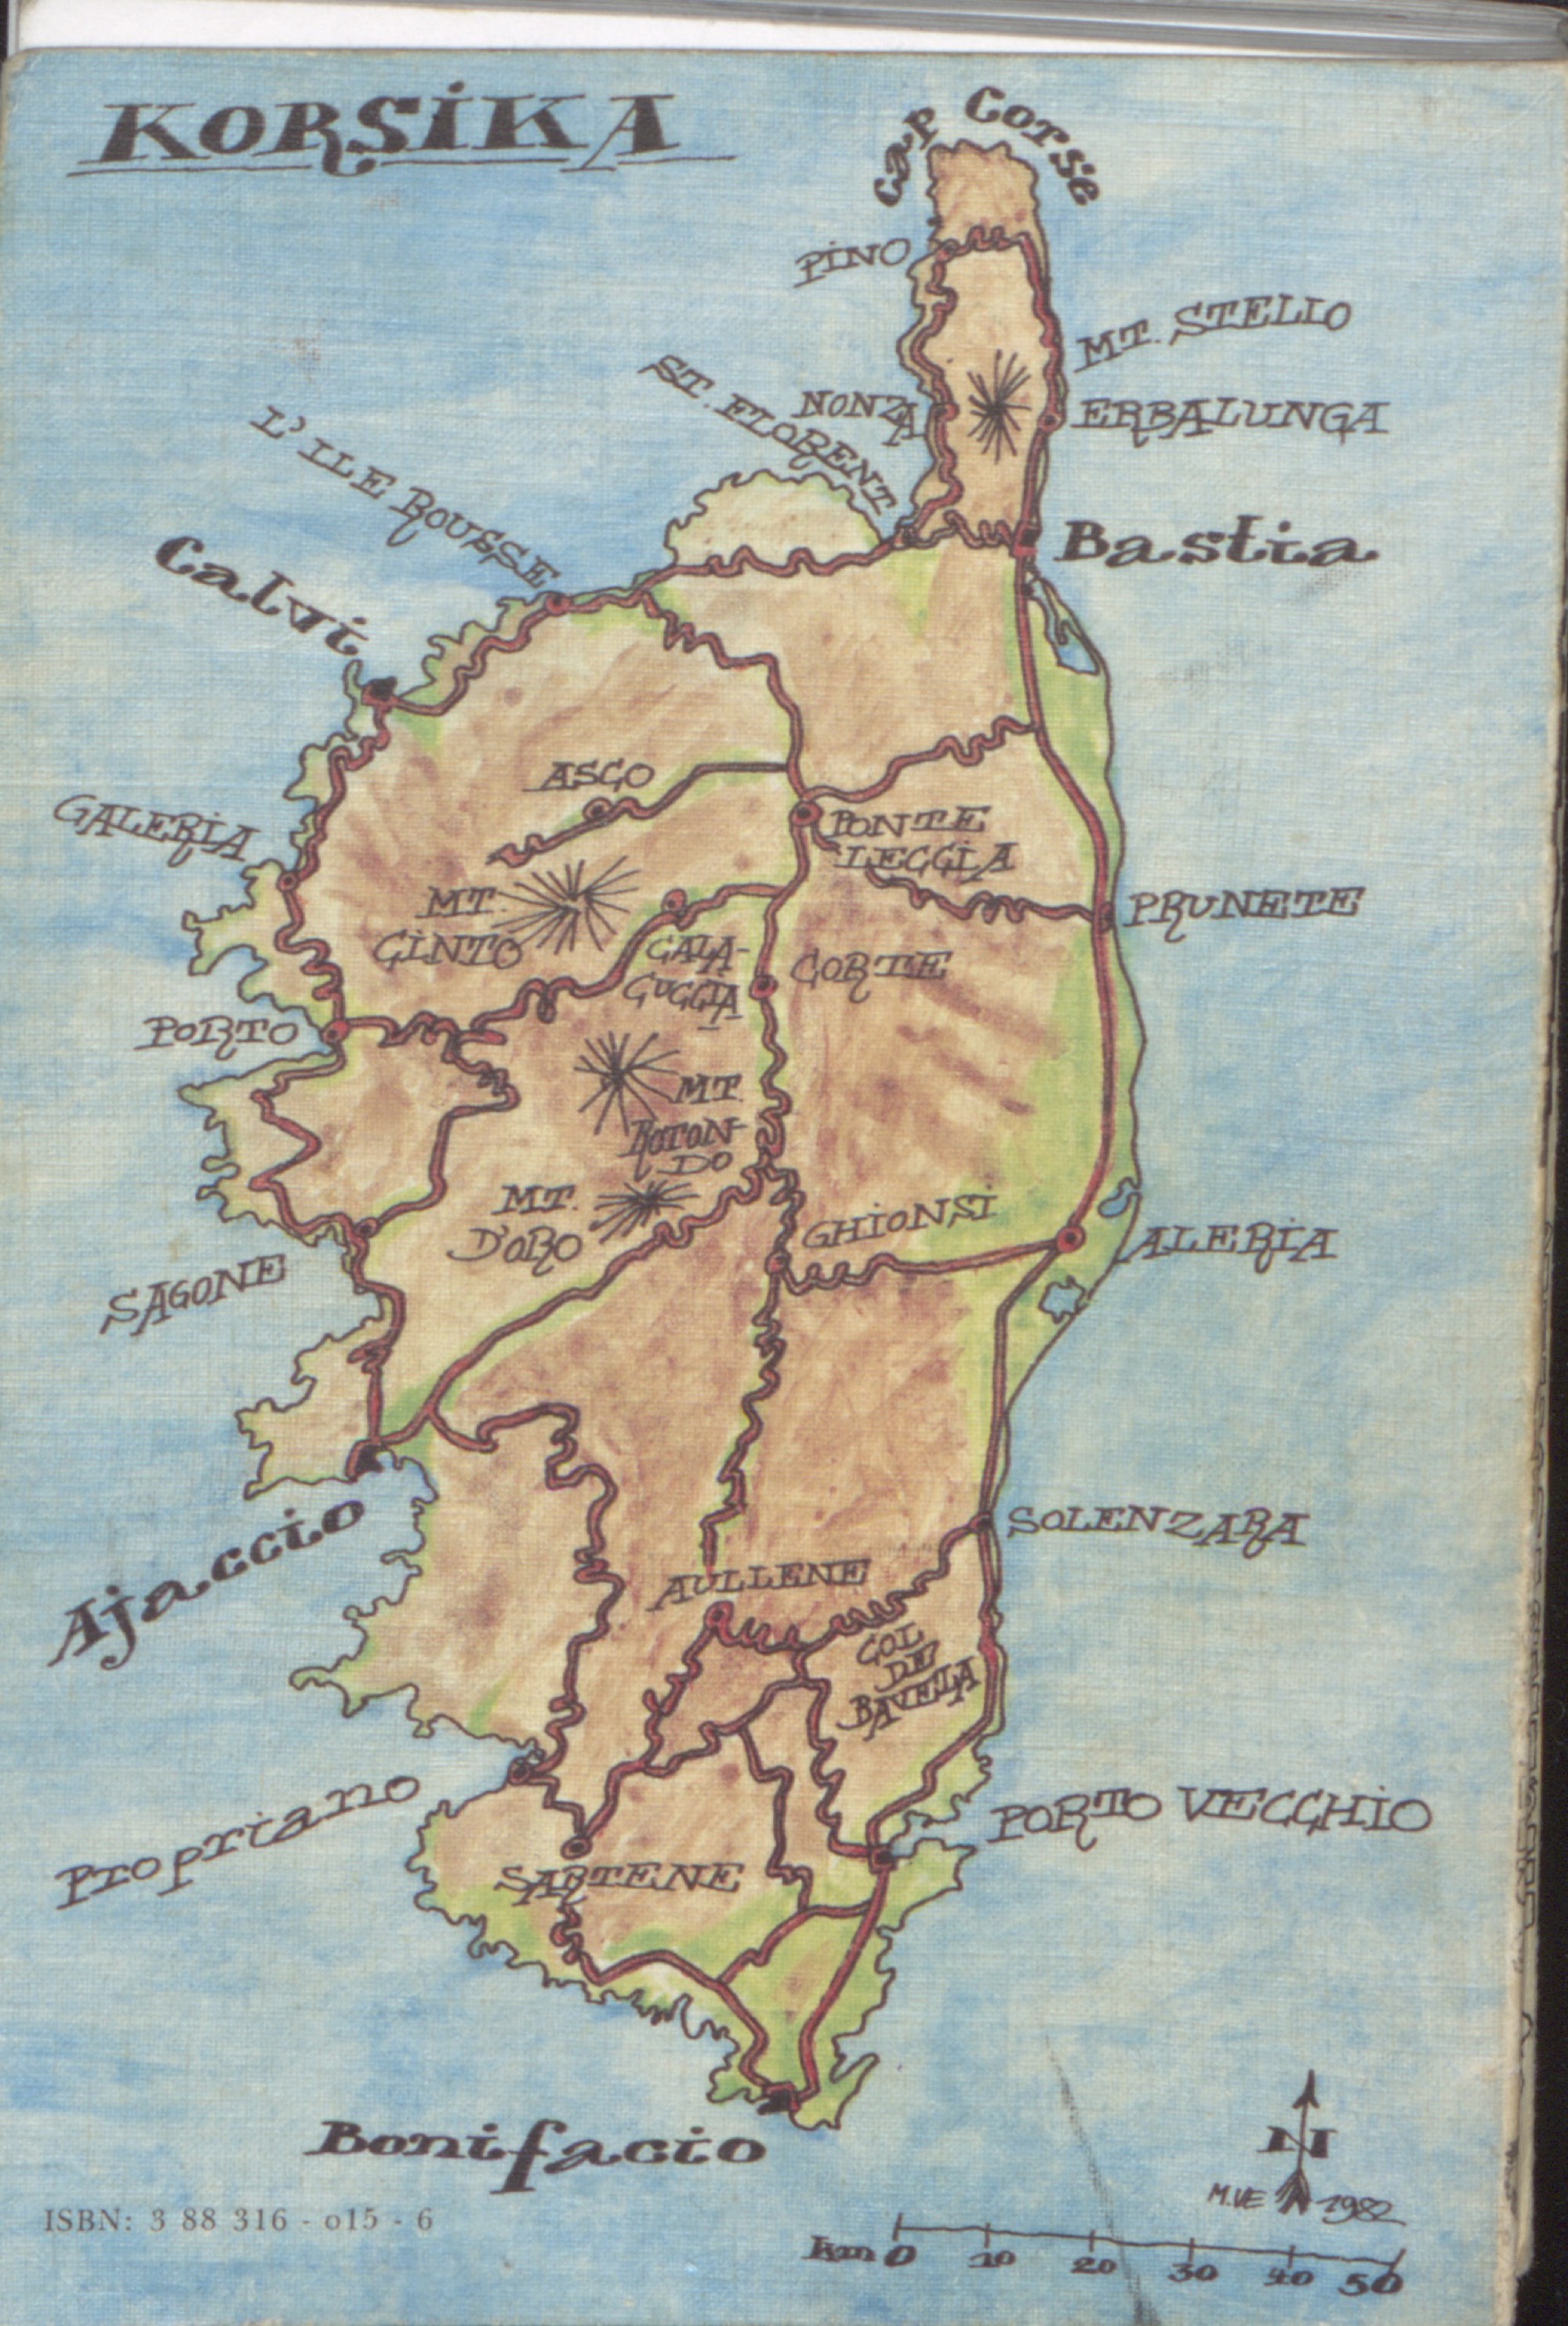 KORSIKA
Cap Corse
PINO
MT. STELLO
ST. FLORENT
NONZA
ERBALUNGA
L'ILE ROUSSE
Bastia
Calvi
ASCO
GALERIA
PONTE
LEGGIA
MT.
CINTO
PRUNETE
CALA-
CUCCIA
CORTE
PORTO
MT
ROTON-
DO
MT.
D'ORO
GHIONSI
ALERIA
SAGONE
Ajaccio
SOLENZARA
AULLENE
COL
DE
BAVELLA
Propriano
PORTO VECCHIO
SARTENE
Bonifacio
N
M.VE 1982
ISBN: 3 88 316 - o15 - 6
km 0 10 20 30 40 50